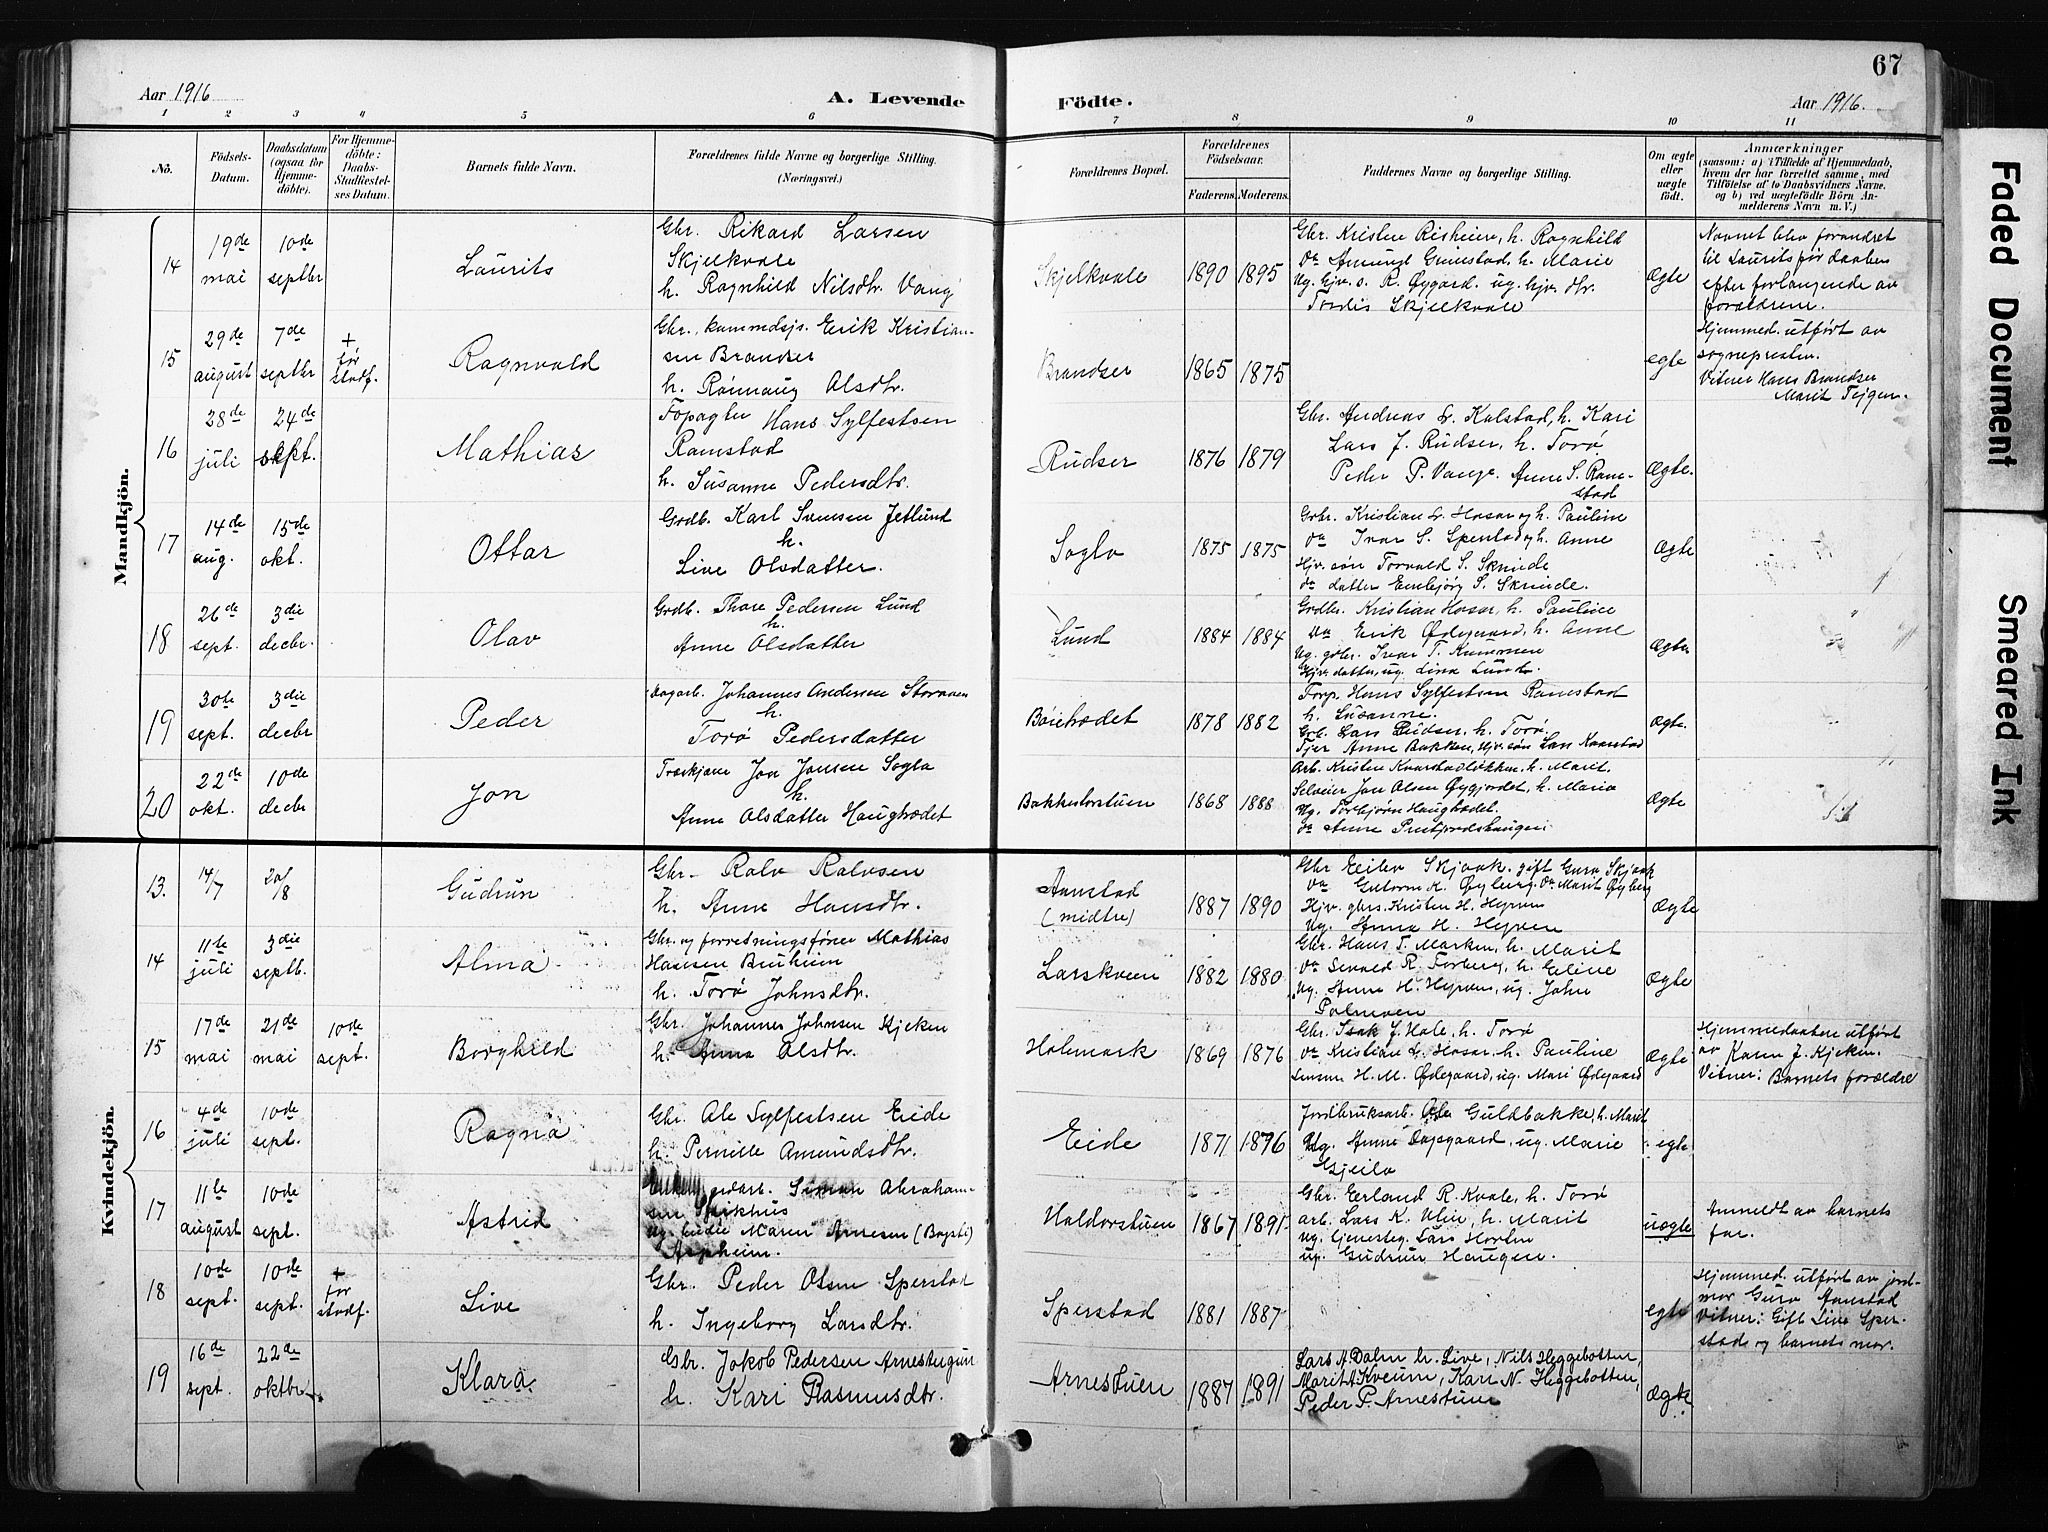 67
Aar 1916
A. Levende
Födte.
Aar 1916.
1 2 3 4 5 6 7 8 9 10 11
No.
Födsels-
Datum.
Daabsdatum
(ogsaa for
Hjemme-
döbte).
For Hjemme-
döbte:
Daabs-
Stadfæstel-
ses Datum.
Barnets fulde Navn.
Forældrenes fulde Navne og borgerlige Stilling.
(Næringsvei.)
Forældrenes Bopæl.
Forældrenes
Födselsaar.
Faderens. Moderens.
Faddernes Navne og borgerlige Stilling.
Om ægte
eller
uægte
født.
Anmærkninger
(saasom: a) i Tilfælde af Hjemmedaab,
hvem der har forrettet samme, med
Tilföielse af to Daabsvidners Navne,
og b) ved uægtefödte Börn An-
melderens Navn m. V.)
Mandkjön.
14
19de
mai
10de
septbr
Laurits
Gbr. Rikard Larsen
Skjelkvale
h. Ragnhild Nilsdtr. Vang
Skjelkvale
1890 1895
Gbr. Kristen Risheim, h. Ragnhild
do Amund Grimstad, h. Marie
Ug. Gjv. s. R. Øygard. ug. hjv. dtr.
Tordis Skjelkvale
Ægte
Navnet blev forandret
til Laurits før daaben
efter forlangende av
forældrene.
15
29de
august
7de
septbr
+
før
stadf.
Ragnvald
Gbr., kummdsjs. Erik Kristian-
sen Brandser
h. Rønnaug Olsdtr.
Brandser
1865 1875
egte
Hjemmed. utført av
sognepresten.
Vitner Hans Brandser
Marit Teigen.
16
28de
juli
24de
sept.
Mathias
Forpagter Hans Sylfestsen
Ramstad
h. Susanne Pedersdtr.
Rudser
1876 1879
Gbr. Andreas Kalstad, h. Kari
Lars J. Rudser, h. Torø
Peder P. Vange. Anne S. Ram-
stad
Ægte.
17
14de
aug.
15de
okt.
Ottar
Grdb. Karl Svensen Jetlund
h.
Live Olsdatter.
Sogla
1875 1875
Grbr. Kristian Hosar og h. Pauline
do Ivar S. Sperstad, h. Anne
Hjv. søn Torvald S. Skrinde
do datter Embjørg S. Skrinde.
Ægte
18
26de
sept.
3die
decbr.
Olav
Grdb. Thore Pedersen Lund
h.
Anne Olsdatter
Lund
1884 1884
Grdbr. Kristian Hosar, h. Pauline
do Erik Ødegaard, h. Anne
Ug. gbr. Ivar T. Rummen
Hjv. datter, ug. Lina Lund.
Ægte
19
30te
sept.
3die
decbr
Peder
Dagarb. Johannes Andersen Storøen
h.
Torø Pedersdatter
Böietrædet
1878 1882
Forp. Hans Sylfestsen Ramstad
h. Susanne.
Grb. Lars Rudser, h. Torø.
Tjer Anne Bakken, Hjv. søn Lars Kvarstad
Ægte.
20
22de
okt.
10de
decbr
Jon
Træskjære Jon Jonsen Sogla
h.
Anne Olsdatter Haugtrædet
Bakkestorstuen
1868 1888
Arb. Kristen Kvarstadløkken, h. Marit.
Selveier Jon Olsen Øygjordet, h. Maria
Ug. Torbjørn Haugtrædet.
do Anne Prestjordshaugen.
Ægte
Kvindekjön.
13.
14/7
20/8
Gudrun
Gbr. Ralv Ralvsen
h. Anne Hansdtr.
Aamstad
(midtre)
1887 1890
Gbr Eilev Skjaak. gift Guro Skjaak
do Guttorm K. Øyberg. do Marit Øyberg
Hjv. gbrs. Kristen H. Hyrven
Ug. Anna H. Hyrven
Ægte
14
11te
juli
3die
septb.
Alma
Gbr. og forretningsfører Mathias
Hansen Bruheim
h. Torø Johnsdtr.
Larskveen
1882 1880
Gbr. Hans T. Marken, h. Marit
do Sevald R. Forberg, h. Eline
Ug. Anna H. Hyrven, ug. John
Polmoen
Ægte
15
17de
mai
21de
mai
10de
sept.
Borghild
Gbr. Johannes Johnsen Kjeken
h. Anna Olsdtr.
Holemark
1869 1876
Gbr. Isak J. Hole, h. Torø
do Kristian Hosar, h. Pauline
H. M. Ødegaard, ug. Mari Ødegaard
Ægte
Hjemmedaaben utført
av Karen J. Kjeken.
Vitner: Barnets forældre
16
4de
juli
10de
sept.
Ragna
Gbr. Ole Sylfestsen Eide
h. Pernille Amundsdtr.
Eide
1871 1876
Jordbruksarb. Ole Guldbakke, h. Marit
Ug. Anne Dagsgaard, ug. Marie
Gjeilo
egte
17
11te
august
10de
sept.
Astrid
gardarb. Simon Abraham-
sen Spikhus
ug. budeie Maren Arnesen (Bøgste)
Aspheim.
Haldorstuen
1867 1891
Gbr. Erland R. Kvale, h. Torø
arb. Lars K. Ulie, h. Marit
ug. tjenesteg. Lars Hovlen
ug. Gudrun Haugen.
uægte
Anmeldt av barnets
far.
18
10de
sept.
10de
sept.
+
for
stadf.
Live
Gbr. Peder Olsen Sperstad
h. Ingeborg Larsdtr.
Sperstad
1881 1887
egte
Hjemmed. utført av jord-
mor Guro Aamstad
Vitner: Gift Live Sper-
stad og barnets mor.
19
16de
sept.
22de
oktbr.
Klara
Gbr. Jakob Pedersen Arnestugun
h. Kari Rasmusdtr.
Arnestuen
1887 1891
Lars A Dalen h. Live, Nils Heggebotten,
Marit A Kveum, Kari N. Heggebotten,
Peder P. Arnestuen
Ægte
Faded Document
Smeared Ink